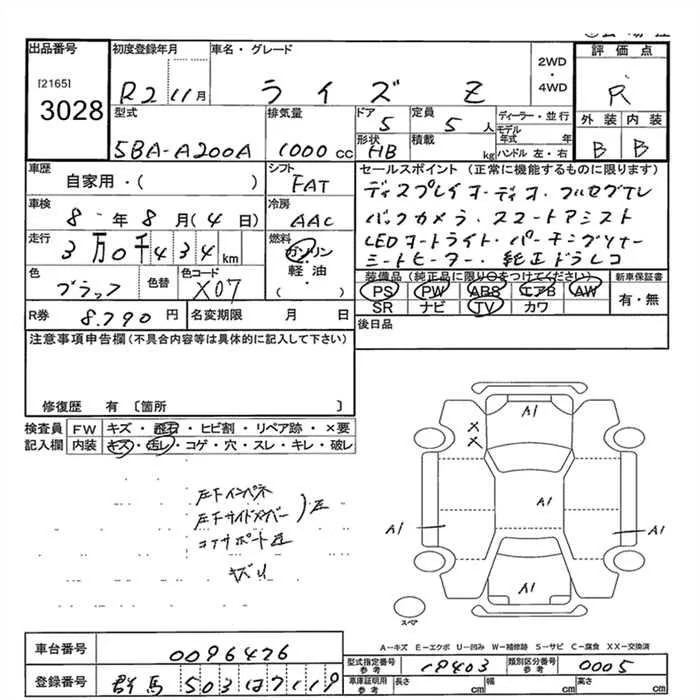 出品番号
[2165]
3028
初度登録年月
R2 11月
車名・グレード
ライズ Z
2WD
・
4WD
評価点
R
型式
5BA-A200A
排気量
1000 cc
ドア
5
形状
HB
定員
5 人
積載
kg
ディーラー・並行
モデル年式 年
ハンドル 左・右
外装 内装
B B
車歴
自家用・( )
シフト
FAT
セールスポイント (正常に機能するものに限ります)
ディスプレイオーディオ・フルセグTV
バックカメラ・スマートアシスト
LEDオートライト・パーキングソナー
シートヒーター・純正ドラレコ
車検
8 年 8 月 (4 日)
冷房
AAC
走行
3万0千434km
燃料
ガソリン
・
軽・油
( )
色
ブラック
色替
色コード
X07
装備品 (純正品に限り○をつけてください)
PS PW ABS エアB AW
SR ナビ TV カワ
新車保証書
有・無
R券
8.790 円
名変期限
月 日
後日品
注意事項申告欄 (不具合内容等は具体的に記入して下さい)
修復歴 有 〔箇所 〕
検査員記入欄
FW キズ・飛石・ヒビ割・リペア跡・×要
内装 キズ・汚レ・コゲ・穴・スレ・キレ・破レ
左Fインパネ
左Fサイドメンバー
コアサポート
A1
×
×
A1
A1
A1
A1
スペア
A-キズ E-エクボ U-凹み W-補修跡 S-サビ C-腐食 XX-交換済
車台番号
0096426
登録番号
群馬 503
型式指定番号
参考
19403
類別区分番号
参考
0005
車庫証明用
参考
長さ
cm
幅
cm
高さ
cm